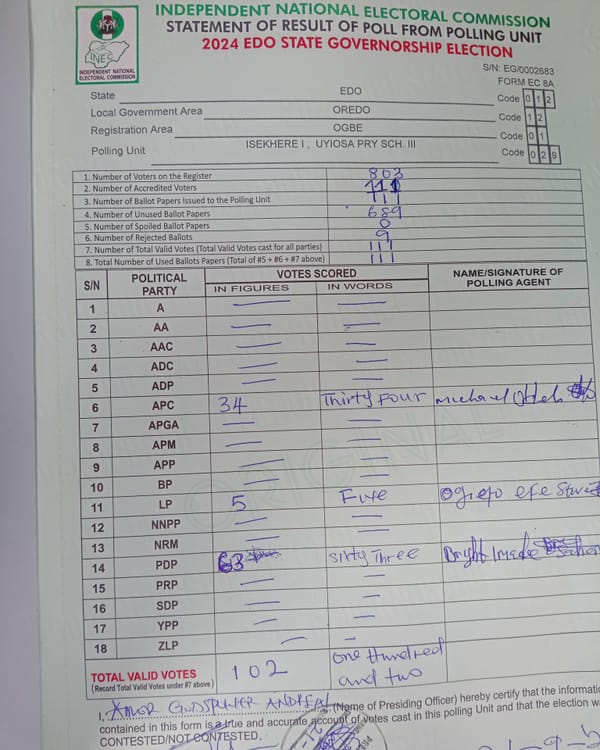 INDEPENDENT NATIONAL ELECTORAL COMMISSION
STATEMENT OF RESULT OF POLL FROM POLLING UNIT
2024 EDO STATE GOVERNORSHIP ELECTION
INEC
INDEPENDENT NATIONAL
ELECTORAL COMMISSION
S/N: EG/0002683
FORM EC 8A
State EDO Code 0 1 2
Local Government Area OREDO Code 1 2
Registration Area OGBE Code 0 1
Polling Unit ISEKHERE I , UYIOSA PRY SCH. III Code 0 2 9
1. Number of Voters on the Register 803
2. Number of Accredited Voters 111
3. Number of Ballot Papers Issued to the Polling Unit
4. Number of Unused Ballot Papers 689
5. Number of Spoiled Ballot Papers 0
6. Number of Rejected Ballots 9
7. Number of Total Valid Votes (Total Valid Votes cast for all parties) 111
8. Total Number of Used Ballots Papers (Total of #5 + #6 + #7 above) 111
S/N POLITICAL PARTY VOTES SCORED NAME/SIGNATURE OF POLLING AGENT
IN FIGURES IN WORDS
1 A — —
2 AA — —
3 AAC — —
4 ADC — —
5 ADP — —
6 APC 34 Thirty Four Michael
7 APGA — —
8 APM — —
9 APP — —
10 BP — —
11 LP 5 Five efe
12 NNPP — —
13 NRM — —
14 PDP 63 Sixty Three Bright
15 PRP — —
16 SDP — —
17 YPP — —
18 ZLP — —
TOTAL VALID VOTES 102 One Hundred and two
(Record Total Valid Votes under #7 above)
ORIGINAL
I, (Name of Presiding Officer) hereby certify that the informatio
contained in this form is a true and accurate account of votes cast in this polling Unit and that the election wa
CONTESTED/NOT CONTESTED.